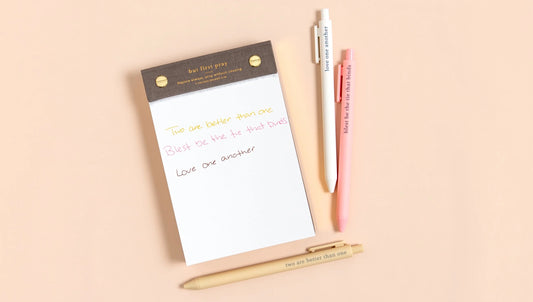 but first pray
Two are better than one
Blest be the tie that binds
Love one another
love one another
blest be the tie that binds
two are better than one